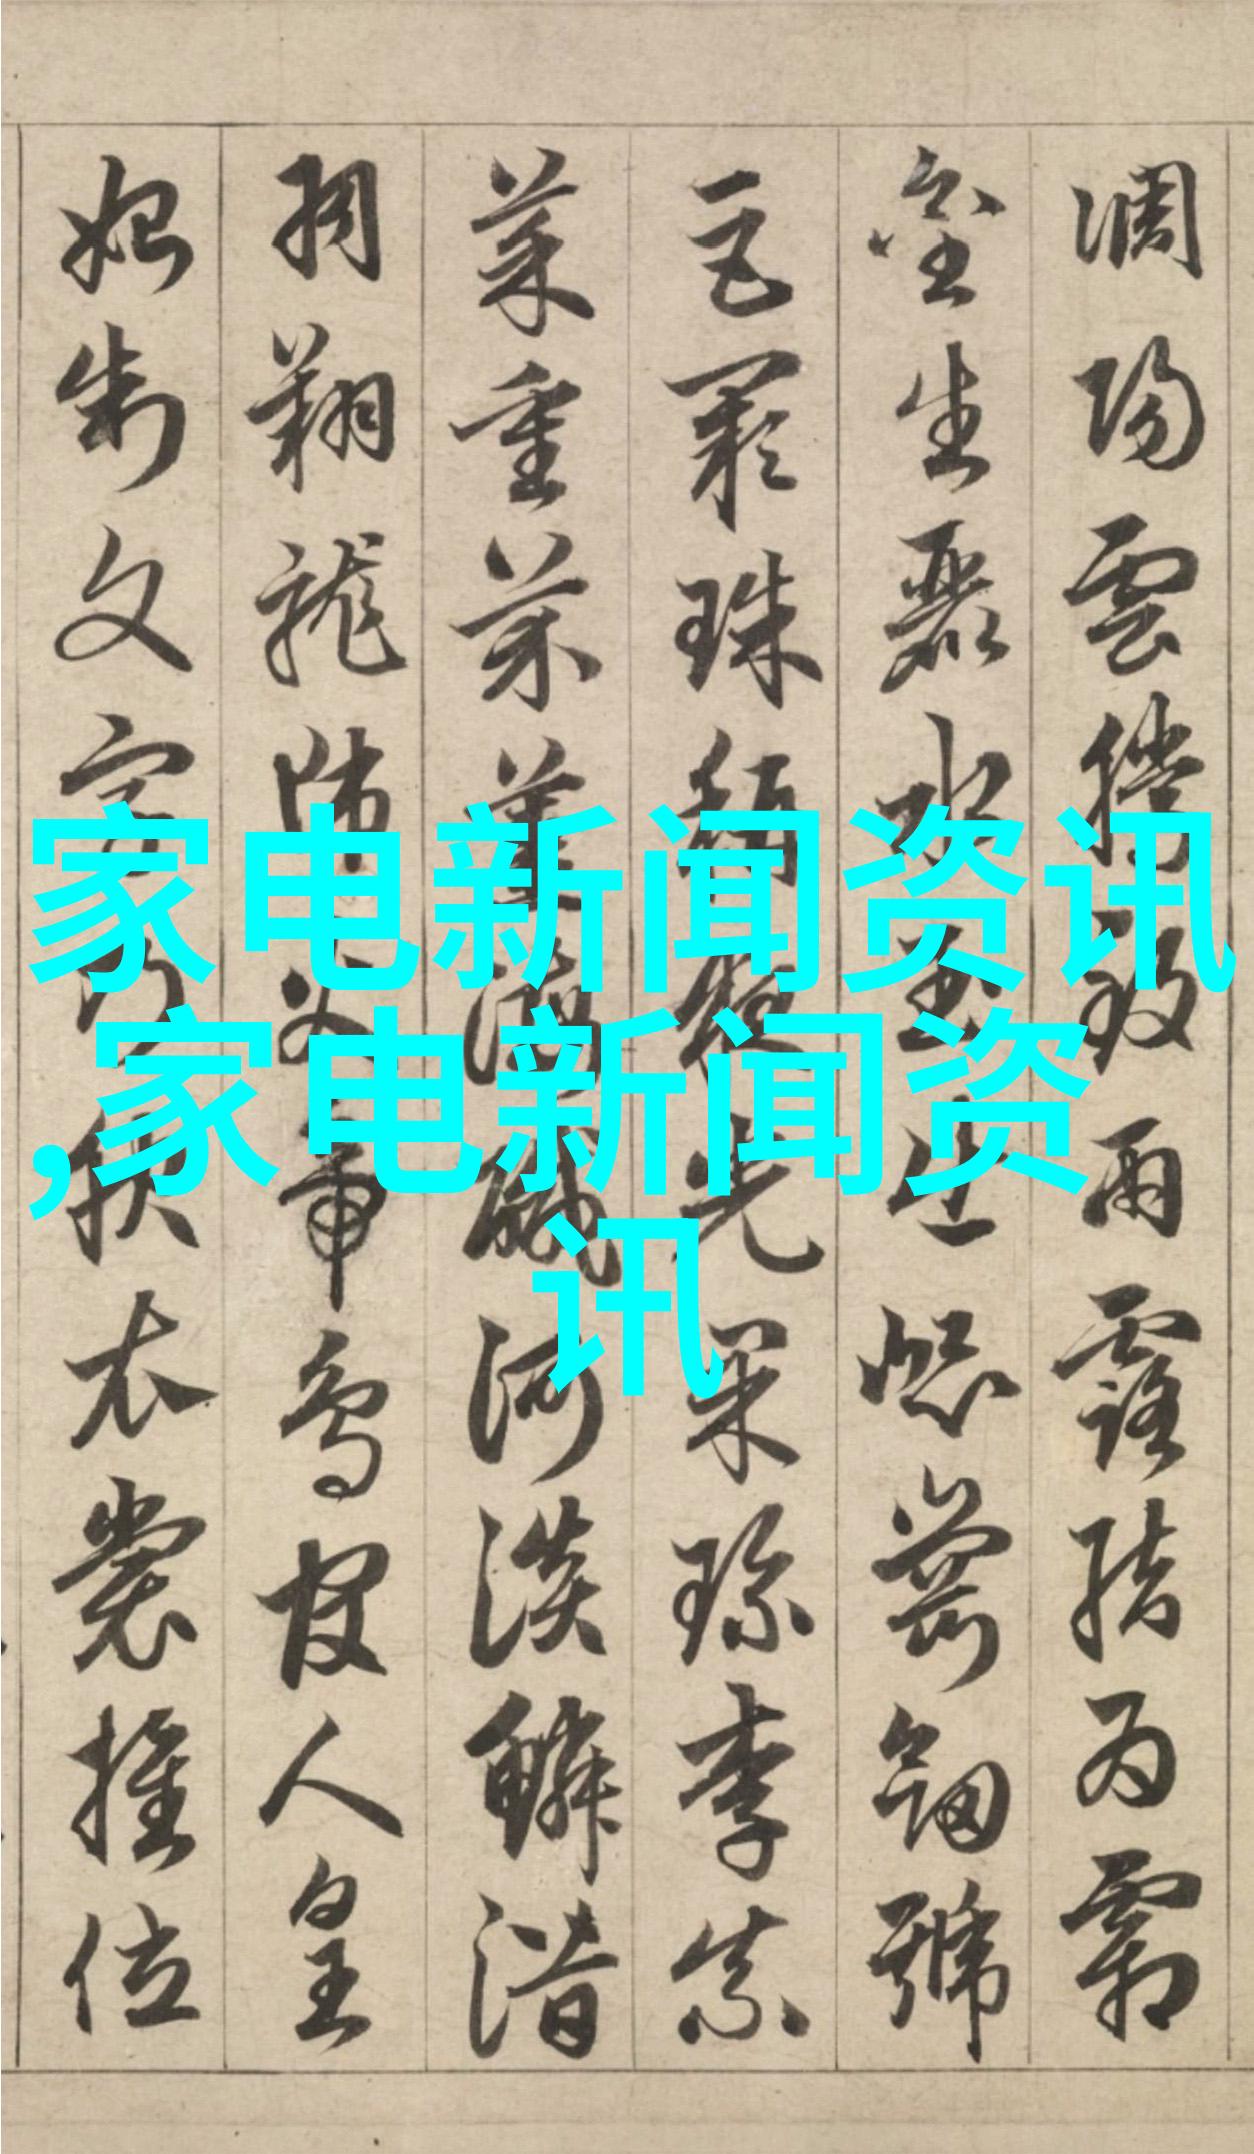 調陽雲騰致雨露結為霜
金生麗水玉出崑崗劍號
巨闕珠稱夜光果珍李柰
菜重芥薑海鹹河淡鱗潛
羽翔龍師火帝鳥官人皇
始制文字乃服衣裳推位
家电新闻资讯
,家电新闻资
讯